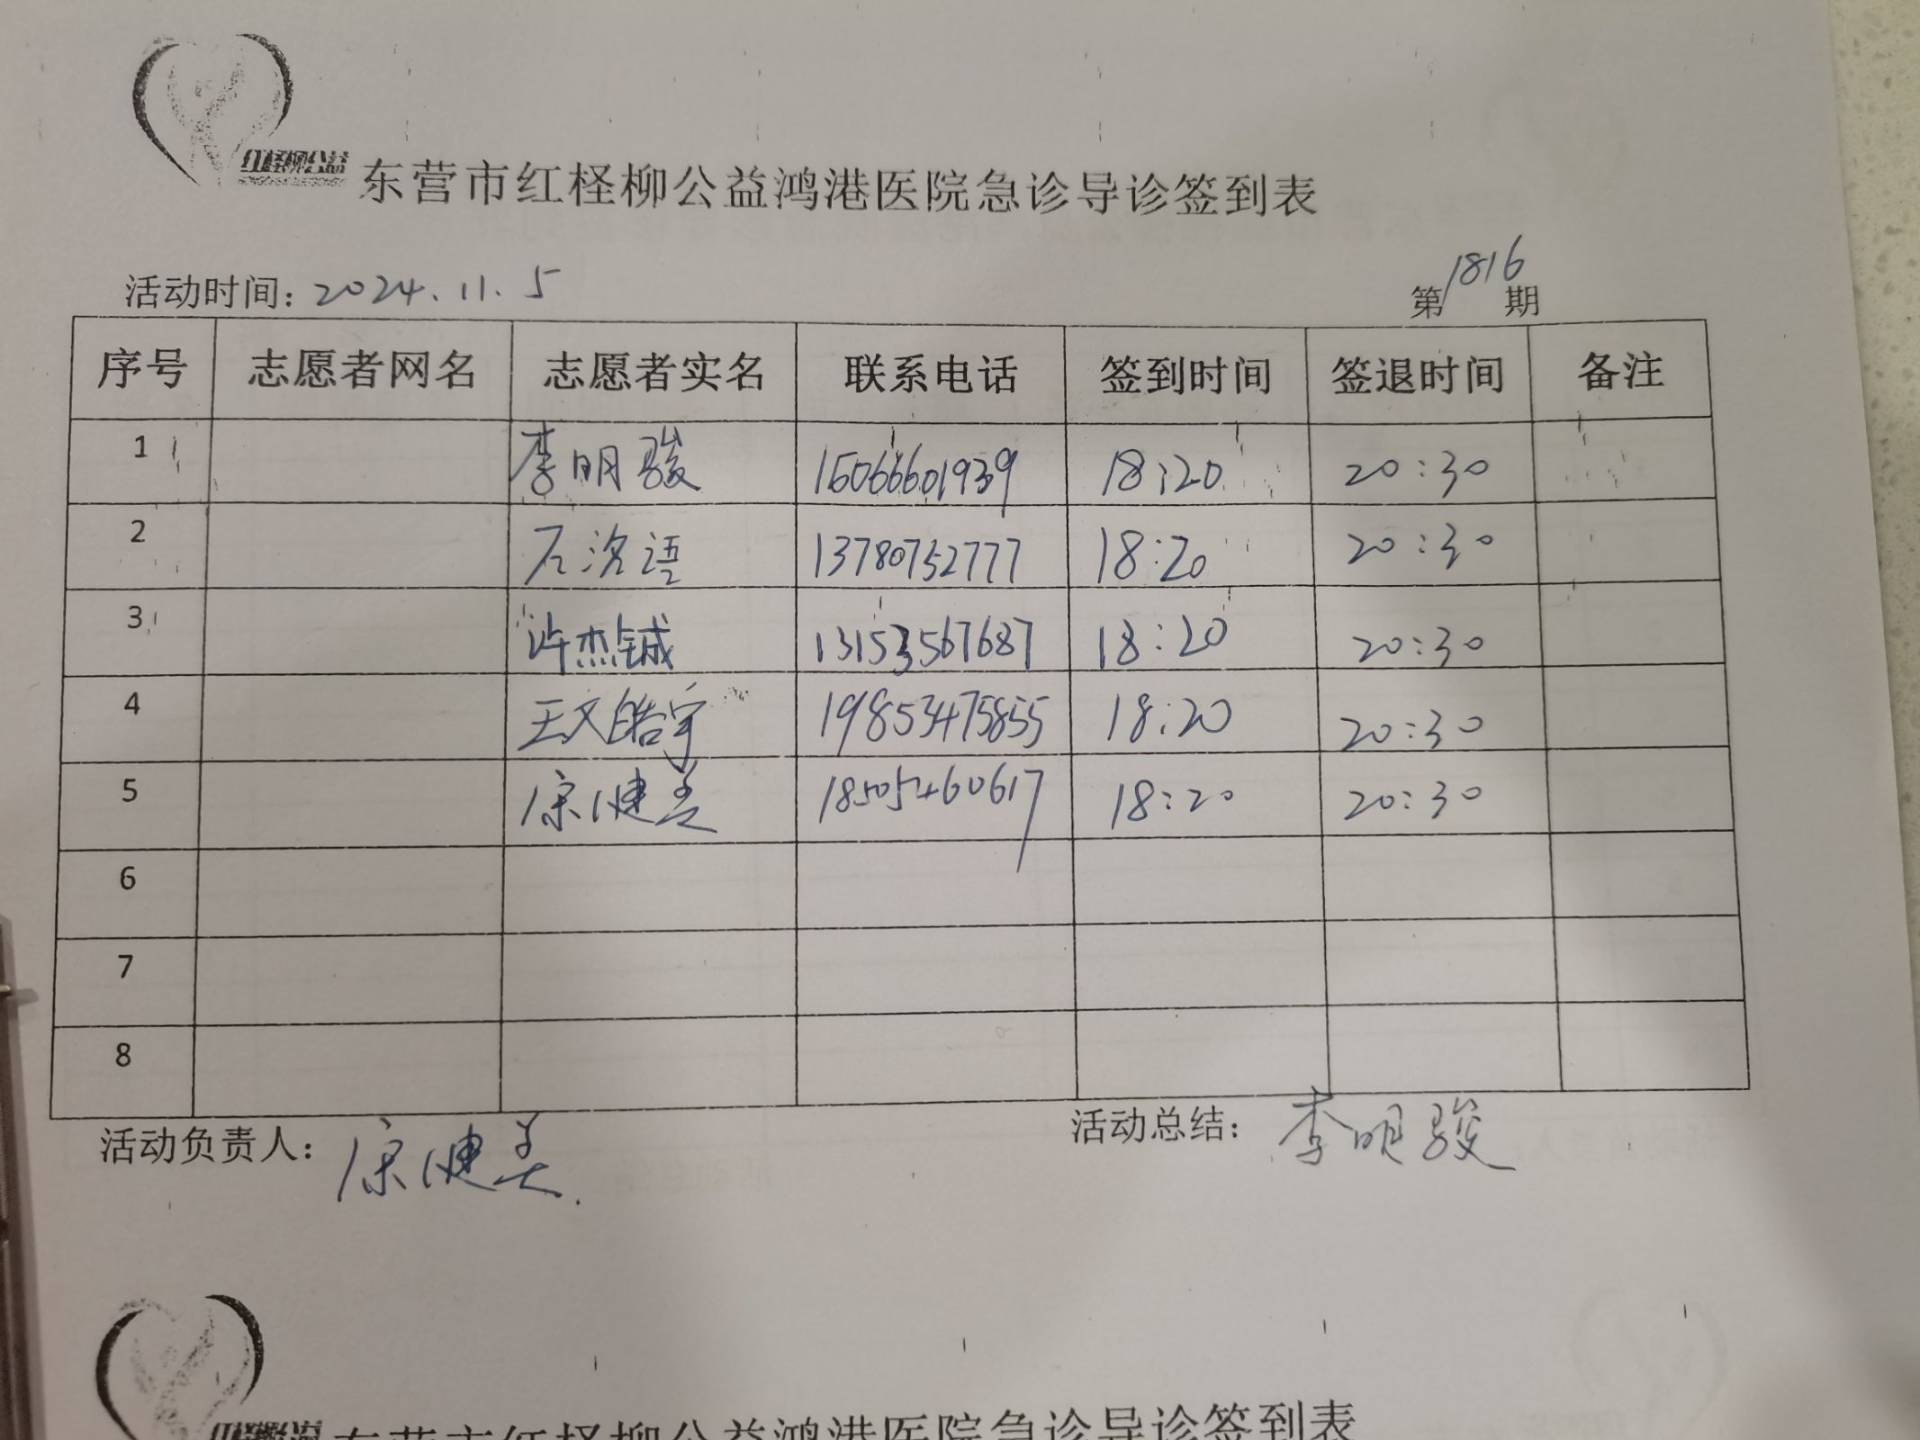 红柽柳公益
东营市红柽柳公益鸿港医院急诊导诊签到表
活动时间：2024.11.5 第1816期
序号 志愿者网名 志愿者实名 联系电话 签到时间 签退时间 备注
1 李明骏 15066601939 18:20 20:30
2 石洺语 13780752777 18:20 20:30
3 许杰铖 13153567687 18:20 20:30
4 王文皓宇 19853475855 18:20 20:30
5 宋健美 18505460617 18:20 20:30
6
7
8
活动负责人：宋健美 活动总结：李明骏
红柽柳公益
东营市红柽柳公益鸿港医院急诊导诊签到表